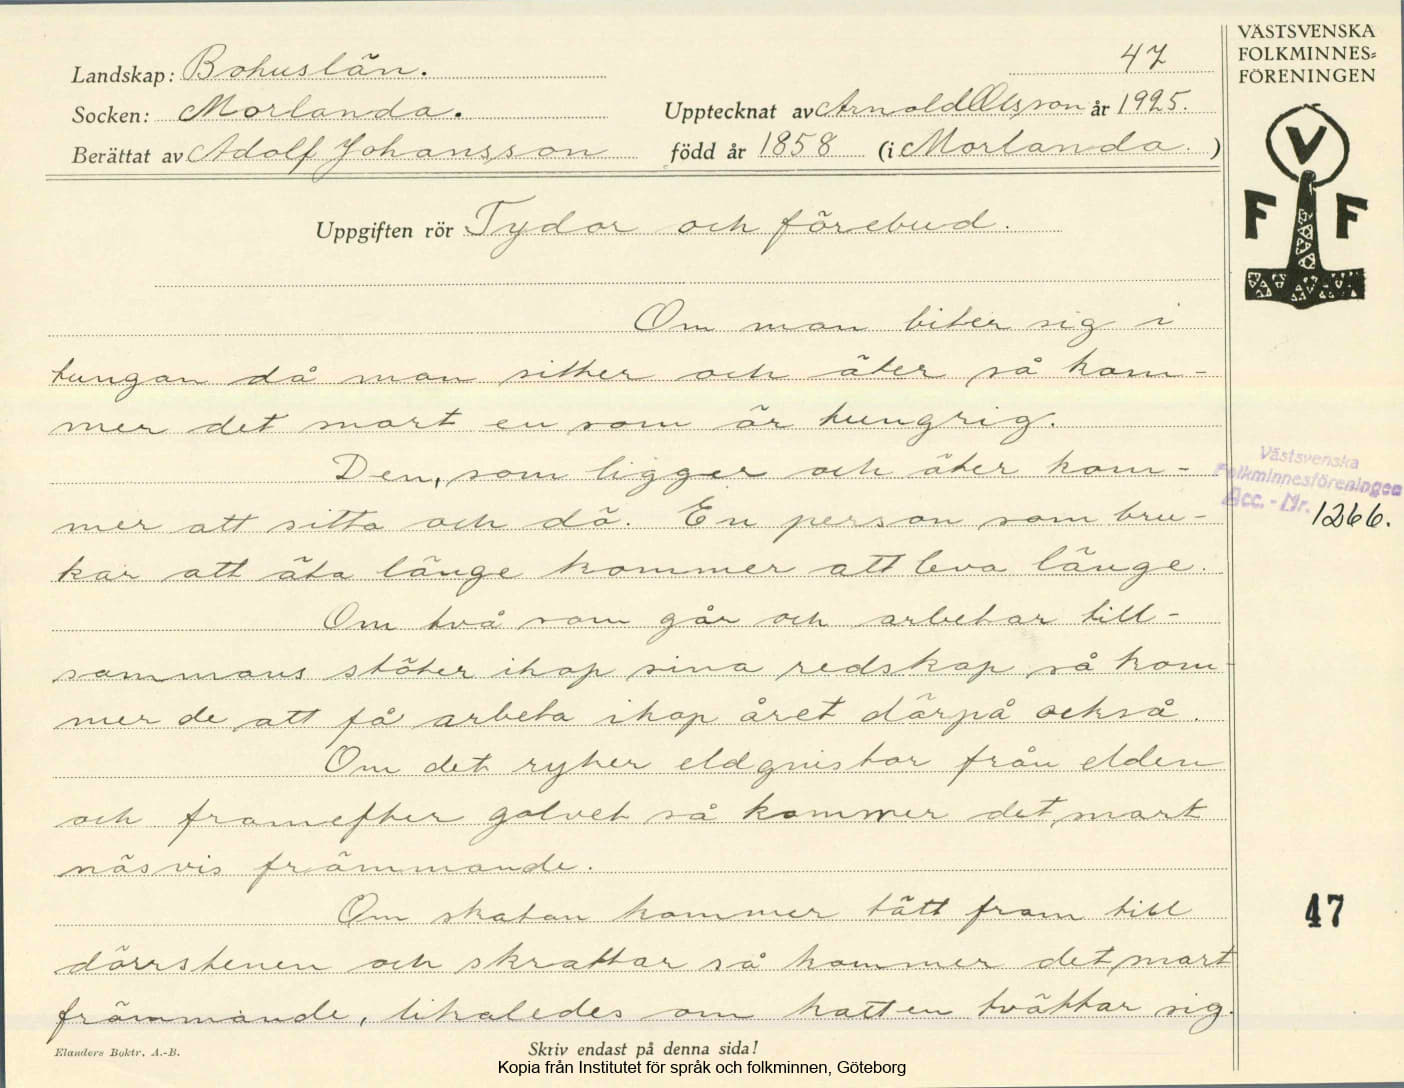 VÄSTSVENSKA
FOLKMINNES=
FÖRENINGEN
47
Landskap: Bohuslän.
Socken: Morlanda.
Upptecknat av Arnold Olsson år 1925.
Berättat av Adolf Johansson
född år 1858 (i Morlanda.)
V
F F
Uppgiften rör Tydor och förebud.
Om man biter sig i
tungan då man sitter och äter så kom-
mer det snart en som är hungrig.
Den, som ligger och äter kom-
mer att sitta och dö. En person som bru-
kar att äta länge kommer att leva länge.
Om två som går och arbetar till-
sammans stöter ihop sina redskap så kom-
mer de att få arbeta ihop året därpå också.
Om det ryker eldgnistor från elden
och framefter golvet så kommer det snart
näsvis främmande.
Om skatan kommer tätt fram till
dörrstenen och skrattar så kommer det snart
främmande, likaledes om katten tvättar sig.
Västsvenska
Folkminnesföreningen
Acc. - Nr. 1266.
47
Elanders Boktr. A.-B.
Skriv endast på denna sida!
Kopia från Institutet för språk och folkminnen, Göteborg